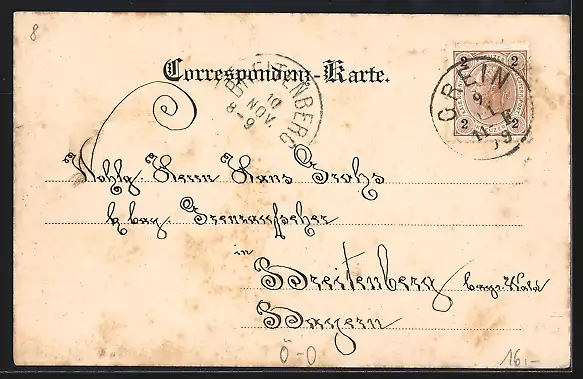 8
Correspondenz-Karte.
BREITENBERG
10
NOV.
8-9
2 2
2 2
GREIN
9
11
Wohlg. Herrn Hans
k. bay. Grenzaufseher
in
Breitenberg bayr. Wald
Bayern
Ö-O
16,-